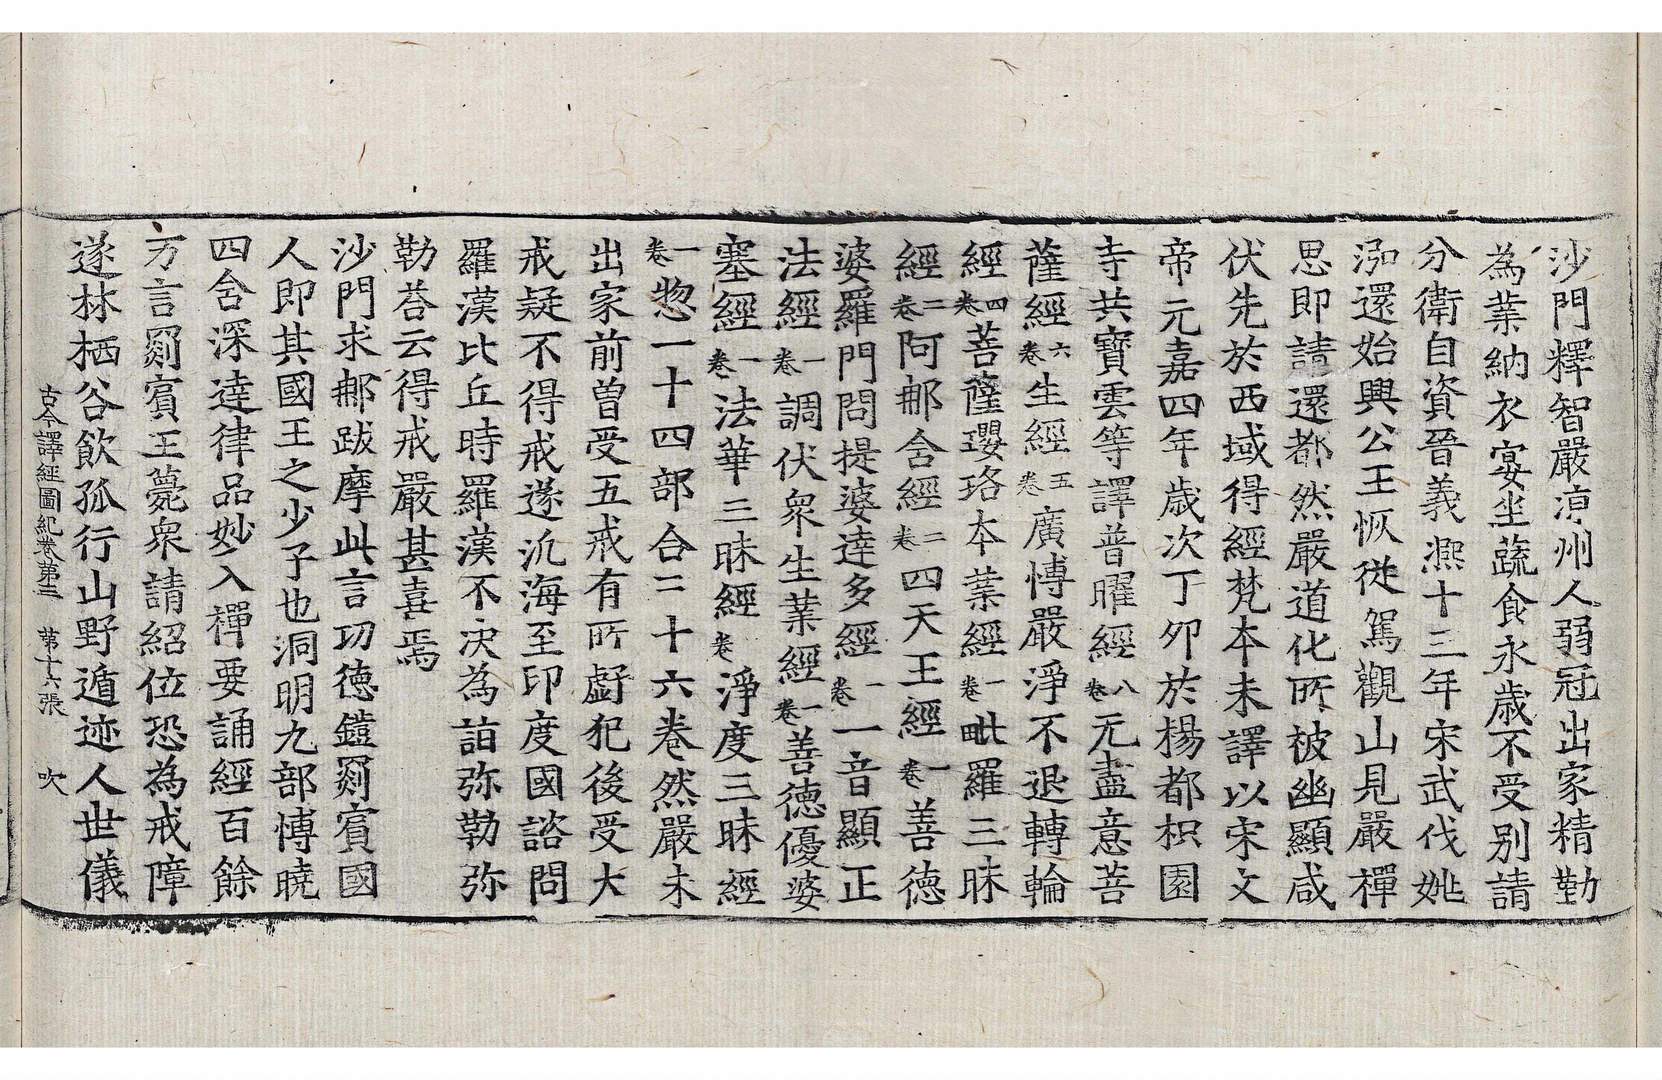 沙門釋智嚴涼州人弱冠出家精勤
為業納衣宴坐蔬食永歲不受別請
分衛自資晉義熙十三年宋武伐姚
泓還始興公王恢從駕觀山見嚴禪
思即請還都然嚴道化所被幽顯咸
伏先於西域得經梵本未譯以宋文
帝元嘉四年歲次丁夘於楊都枳園
寺共寶雲等譯普曜經八卷无盡意菩
薩經六卷生經五卷廣博嚴淨不退轉輪
經四卷菩薩瓔珞本業經一卷毗羅三昧
經二卷阿郍含經二卷四天王經一卷善德
婆羅門問提婆達多經一卷一音顯正
法經一卷調伏衆生業經一卷善德優婆
塞經一卷法華三昧經一卷淨度三昧經
一卷惣一十四部合三十六卷然嚴未
出家前曾受五戒有所虧犯後受大
戒疑不得戒遂汎海至印度國諮問
羅漢比丘時羅漢不決為詣弥勒弥
勒荅云得戒嚴甚喜焉
沙門求郍跋摩此言功德鎧罽賓國
人即其國王之少子也洞明九部博曉
四含深達律品妙入禪要誦經百餘
万言罽賓王薨衆請紹位恐為戒障
遂林栖谷飲孤行山野遁迹人世儀
古今譯經圖紀卷第三 第十六張 吹